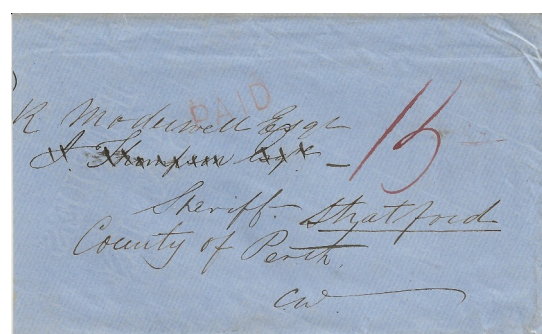 PAID
R Moderwell Esqr
J. Thompson Esqr. — 15
Sheriff. Stratford
County of Perth.
C.W.